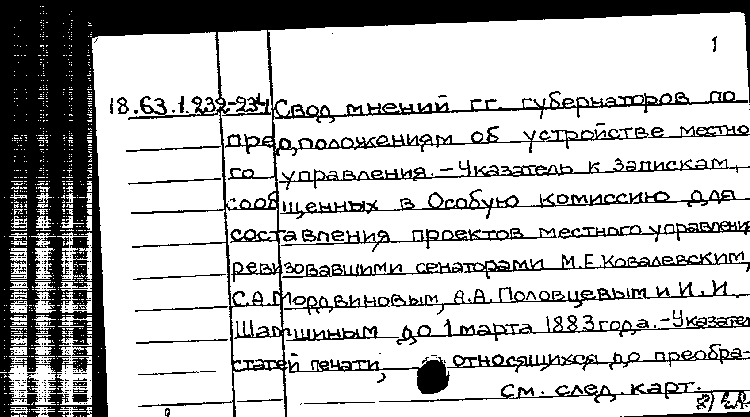 1
18.63.1.232-234 Свод мнений г.г. губернаторов по
предположениям об устройстве местно
го управления. - Указатель к запискам,
сообщенных в Особую комиссию для
составления проектов местного управлени
ревизовавшими сенаторами М.Е. Ковалевским,
С.А. Мордвиновым, А.А. Половцевым и И.И.
Шамшиным до 1 марта 1883 года. - Указател
статей печати, относящихся до преобра-
см. след. карт.